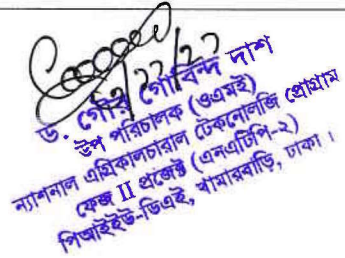 ড. গৌর গোবিন্দ দাশ
উপ পরিচালক (ওএমই)
ন্যাশনাল এগ্রিকালচারাল টেকনোলজি প্রোগ্রাম
ফেজ II প্রজেক্ট (এনএটিপি-২)
পিআইইউ-ডিএই, খামারবাড়ি, ঢাকা।